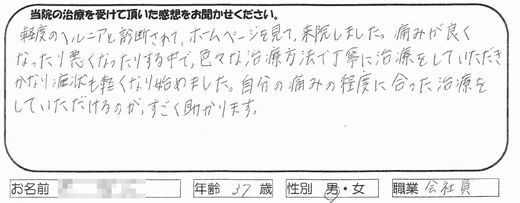 当院の治療を受けて頂いた感想をお聞かせください。
軽度のヘルニアと診断されて、ホームページを見て、来院しました。痛みが良く
なったり悪くなったりする中で、色々な治療方法で丁寧に治療をしていただき
かなり症状も軽くなり始めました。自分の痛みの程度に合った治療を
していただけるのが、すごく助かります。
お名前 年齢 37 歳 性別 男・女 職業 会社員